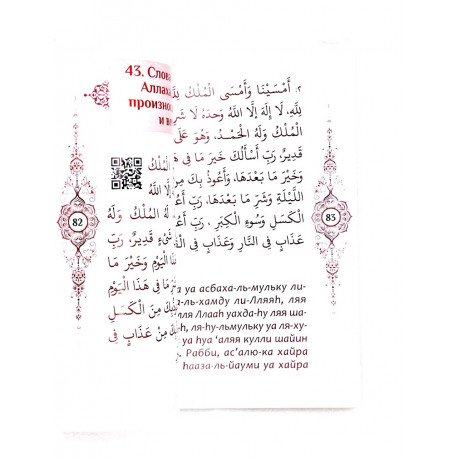 43. Слова
Аллаха
произно
и ве
82
الْمُلْكُ
اللَّهُ
الْمُلْكُ وَلَهُ
شَيْءٍ قَدِيرٌ، رَبِّ
الْيَوْمِ وَخَيْرَ مَا
مَا فِي هَذَا الْيَوْمِ
بِكَ مِنَ الْكَسَلِ
بِكَ مِنْ عَذَابٍ فِي
٢. أَمْسَيْنَا وَأَمْسَى الْمُلْكُ
لِلَّهِ، لَا إِلَهَ إِلَّا اللَّهُ وَحْدَهُ لَا
الْمُلْكُ وَلَهُ الْحَمْدُ، وَهُوَ عَلَى
قَدِيرٌ، رَبِّ أَسْأَلُكَ خَيْرَ مَا فِي
وَخَيْرَ مَا بَعْدَهَا، وَأَعُوذُ بِكَ مِنْ
اللَّيْلَةِ وَشَرِّ مَا بَعْدَهَا، رَبِّ
الْكَسَلِ وَسُوءِ الْكِبَرِ، رَبِّ
عَذَابٍ فِي النَّارِ وَعَذَابٍ فِي
83
а уа асбаха-ль-мульку ли-
а-ль-хамду ли-Лляяһ, ляя
лля Ллааһ уахда-һу ляя ша-
һ, ля-һу-льмульку уа ля-ху-
уа һуа ‘аляя кулли шайин
. Рабби, ас’алю-ка хайра
һааза-ль-йауми уа хайра